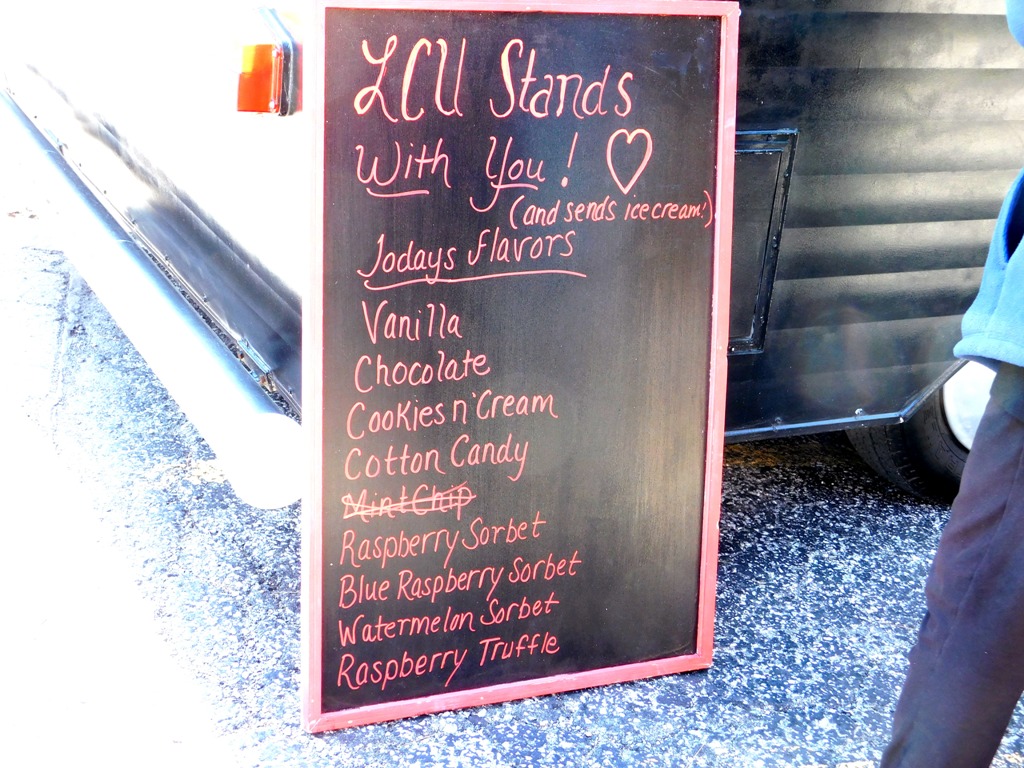 LCU Stands
With You! ♡
(and sends ice cream!)
Todays flavors
Vanilla
Chocolate
Cookies n' Cream
Cotton Candy
Mint Chip
Raspberry Sorbet
Blue Raspberry Sorbet
Watermelon Sorbet
Raspberry Truffle